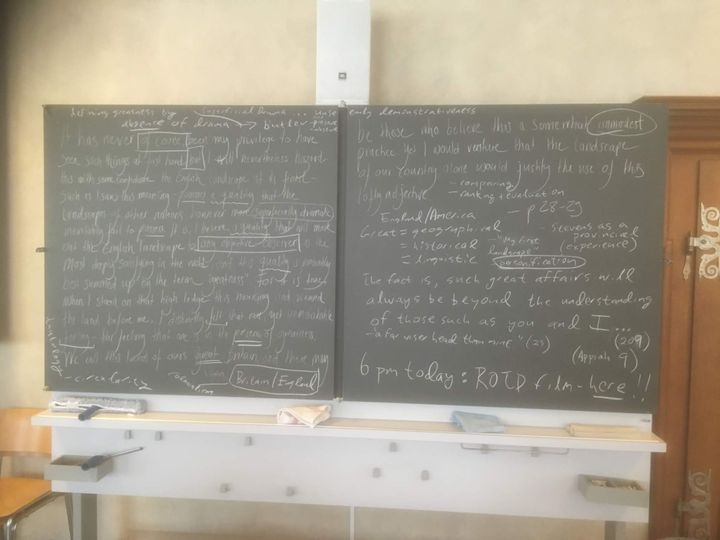 defining greatness by superficial drama ...
absence of drama → but low
It has never of course been my privilege to have
seen such things at first hand, but I will nonetheless hazard
this with some confidence: the English landscape at its finest -
such as I saw this morning - possesses a quality that the
landscapes of other nations, however more superficially dramatic,
inevitably fail to possess. It is, I believe, a quality that will mark
out the English landscape to any objective observer as the
most deeply satisfying in the world, and this quality is probably
best summed up by the term 'greatness'. For it is true,
when I stood on that high ledge this morning and viewed
the land before me, I distinctly felt that rare, yet unmistakable
feeling - the feeling that one is in the presence of greatness.
We call this land of ours Great Britain, and there may
- circularity
Britain/England
emily demonstrativeness
be those who believe this a somewhat immodest
practice. Yet I would venture that the landscape
of our country alone would justify the use of this
lofty adjective.
- comparing
- ranking + evaluation
England/America
- p 28-29
Great = geographical
= historical
= linguistic
- Stevens as a
provincial
(experience)
landscape"
personification
The fact is, such great affairs will
always be beyond the understanding
of those such as you and I...
(209)
- "a far wiser head than mine" (23)
(Appiah 9)
6 pm today: ROTD film - here!!